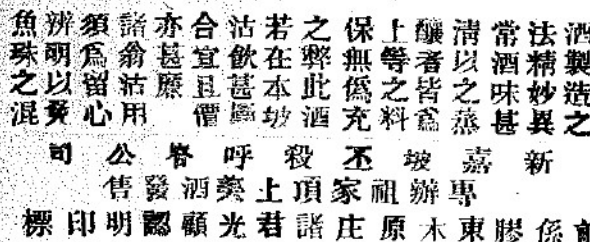 酒製造之
法精妙異
常酒味甚
清以之蒸
釀者皆爲
上等之料
保無僞充
之弊此酒
若在本坡
沽飲甚屬
合宜且價
亦甚廉
諸翁沽用
須爲留心
辨明以免
魚珠之混
新嘉坡丕殺呼峇公司
專辦祖家頂上羹酒發售
係膠東木原庄諸君光顧認明印標